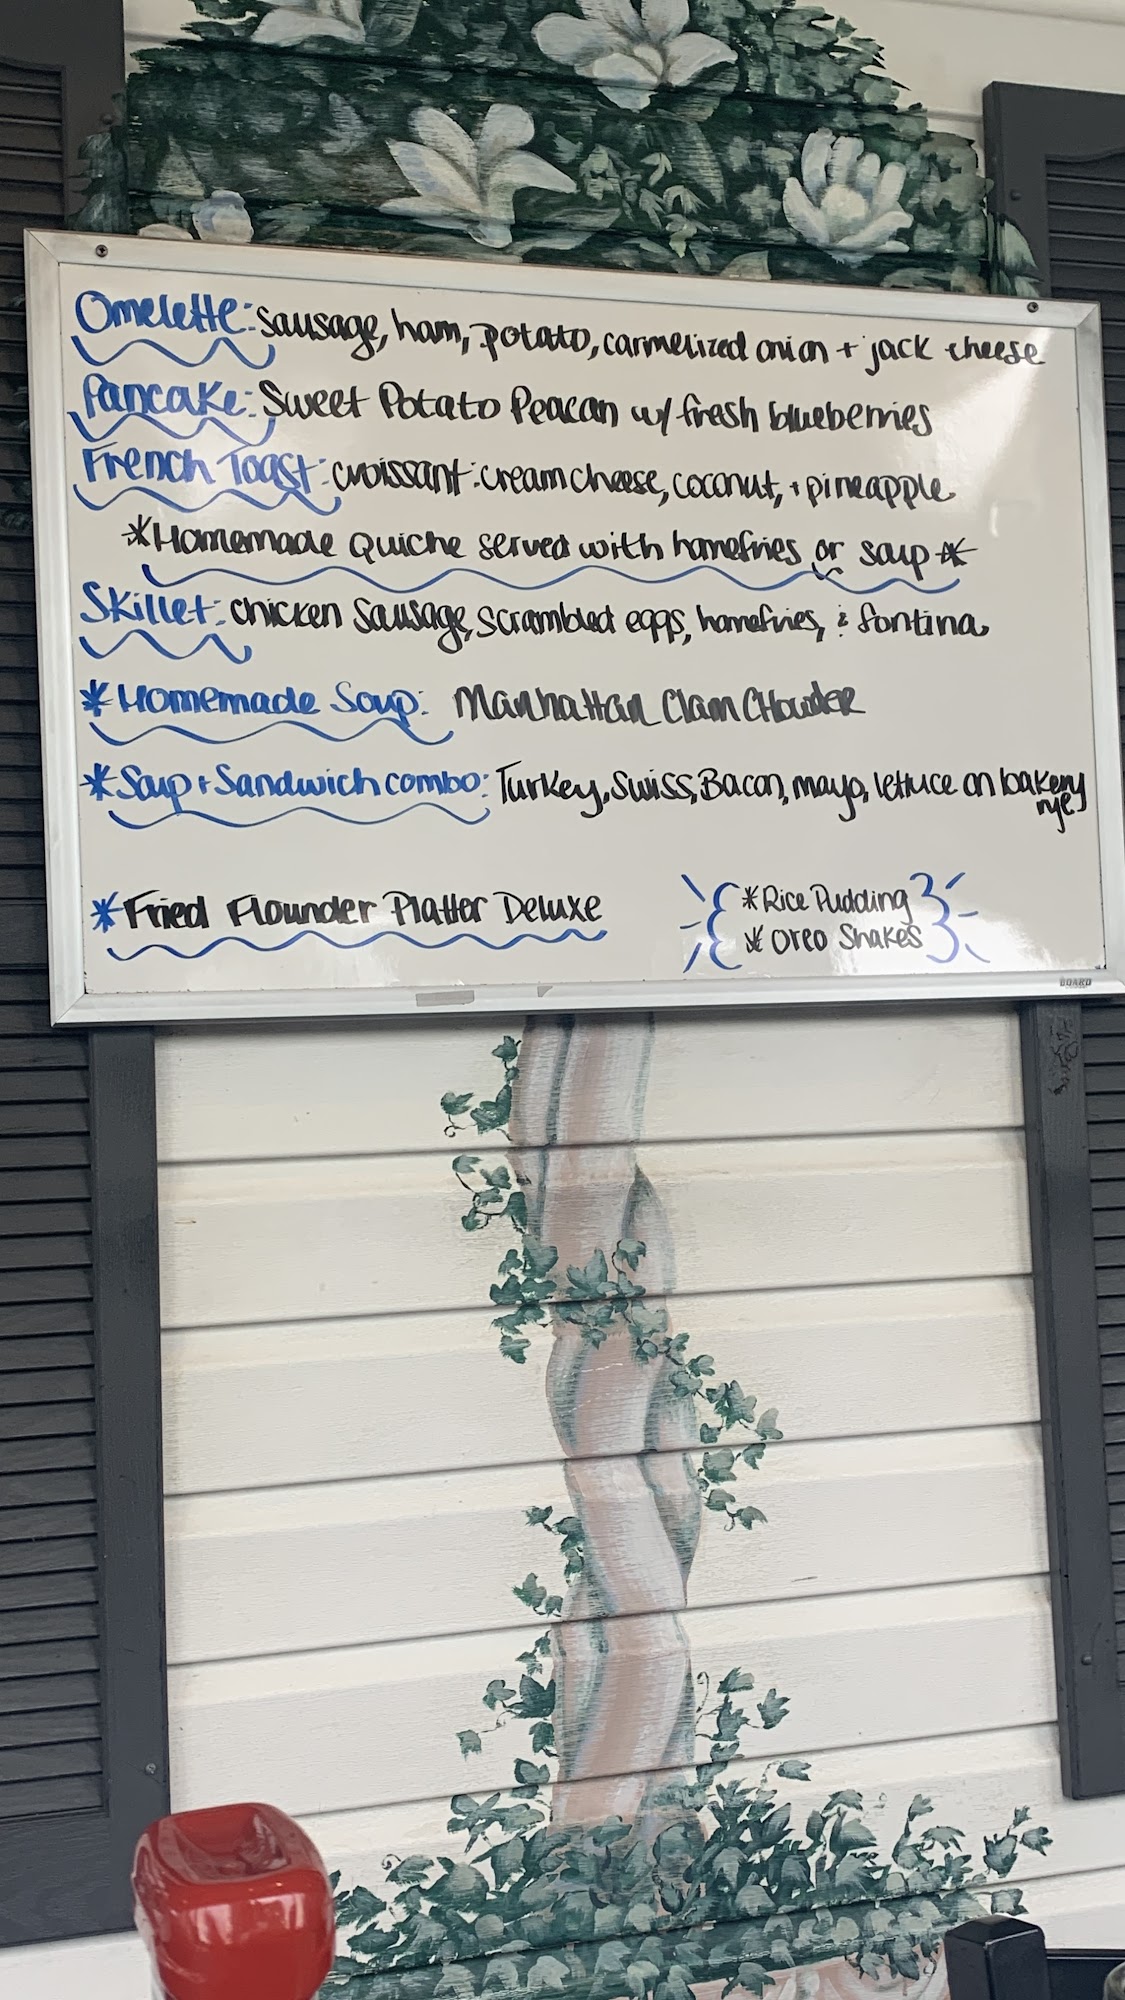 Omelette: Sausage, ham, potato, carmelized onion + jack cheese
Pancake: Sweet Potato Peacan w/ fresh blueberries
French Toast: croissant: cream cheese, coconut, + pineapple
*Homemade Quiche served with homefries or soup*
Skillet: chicken sausage, scrambled eggs, homefries, & fontina
*Homemade Soup: Manhattan Clam Chowder
*Soup + Sandwich combo: Turkey, Swiss, Bacon, mayo, lettuce on bakery
rye
*Fried Flounder Platter Deluxe
*Rice Pudding
*Oreo Shakes
BOARD